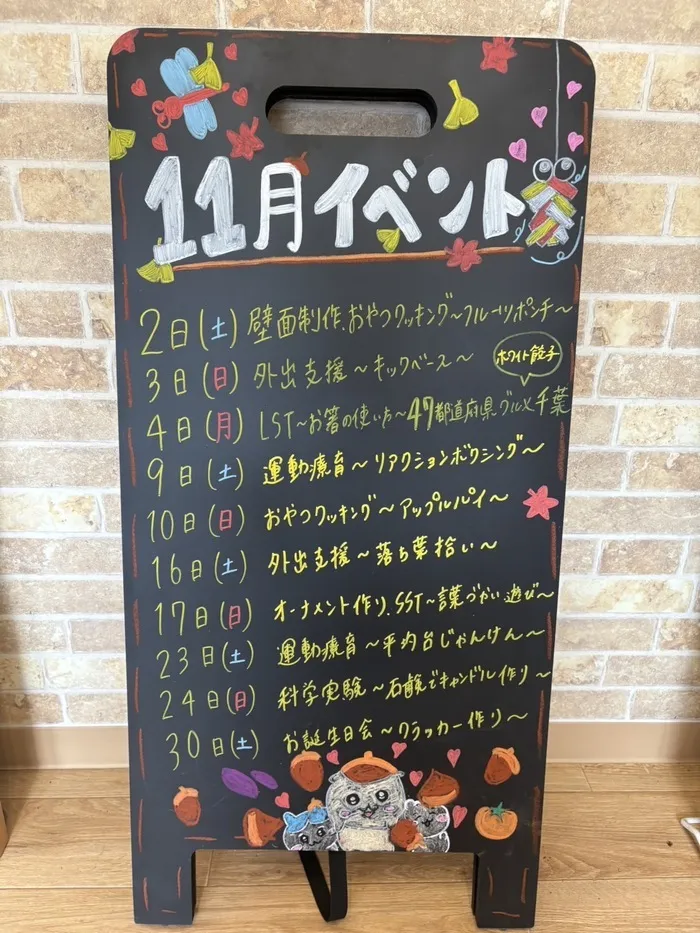 11月イベント
2日(土) 壁面制作、おやつクッキング～フルーツポンチ～
3日(日) 外出支援～キックベース～
ホワイト餃子
4日(月) LST～お箸の使い方～47都道府県グルメ千葉
9日(土) 運動療育～リアクションボクシング～
10日(日) おやつクッキング～アップルパイ～
16日(土) 外出支援～落ち葉拾い～
17日(日) オーナメント作り、SST～言葉づかい遊び～
23日(土) 運動療育～平均台じゃんけん～
24日(日) 科学実験～石鹸でキャンドル作り～
30日(土) お誕生日会～クラッカー作り～